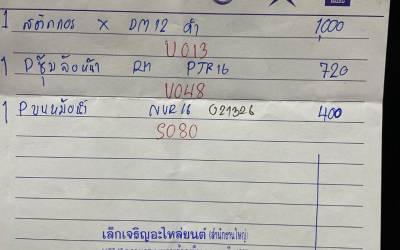 1 สติกเกอร์ X DM12 ดำ 1,000
U013
1 P ซุ้มล้อหน้า RH PJR16 720
U048
1 P ขาหม้อน้ำ NVR16 021326 400
S080
เล็กเจริญอะไหล่ยนต์ (สำนักงานใหญ่)